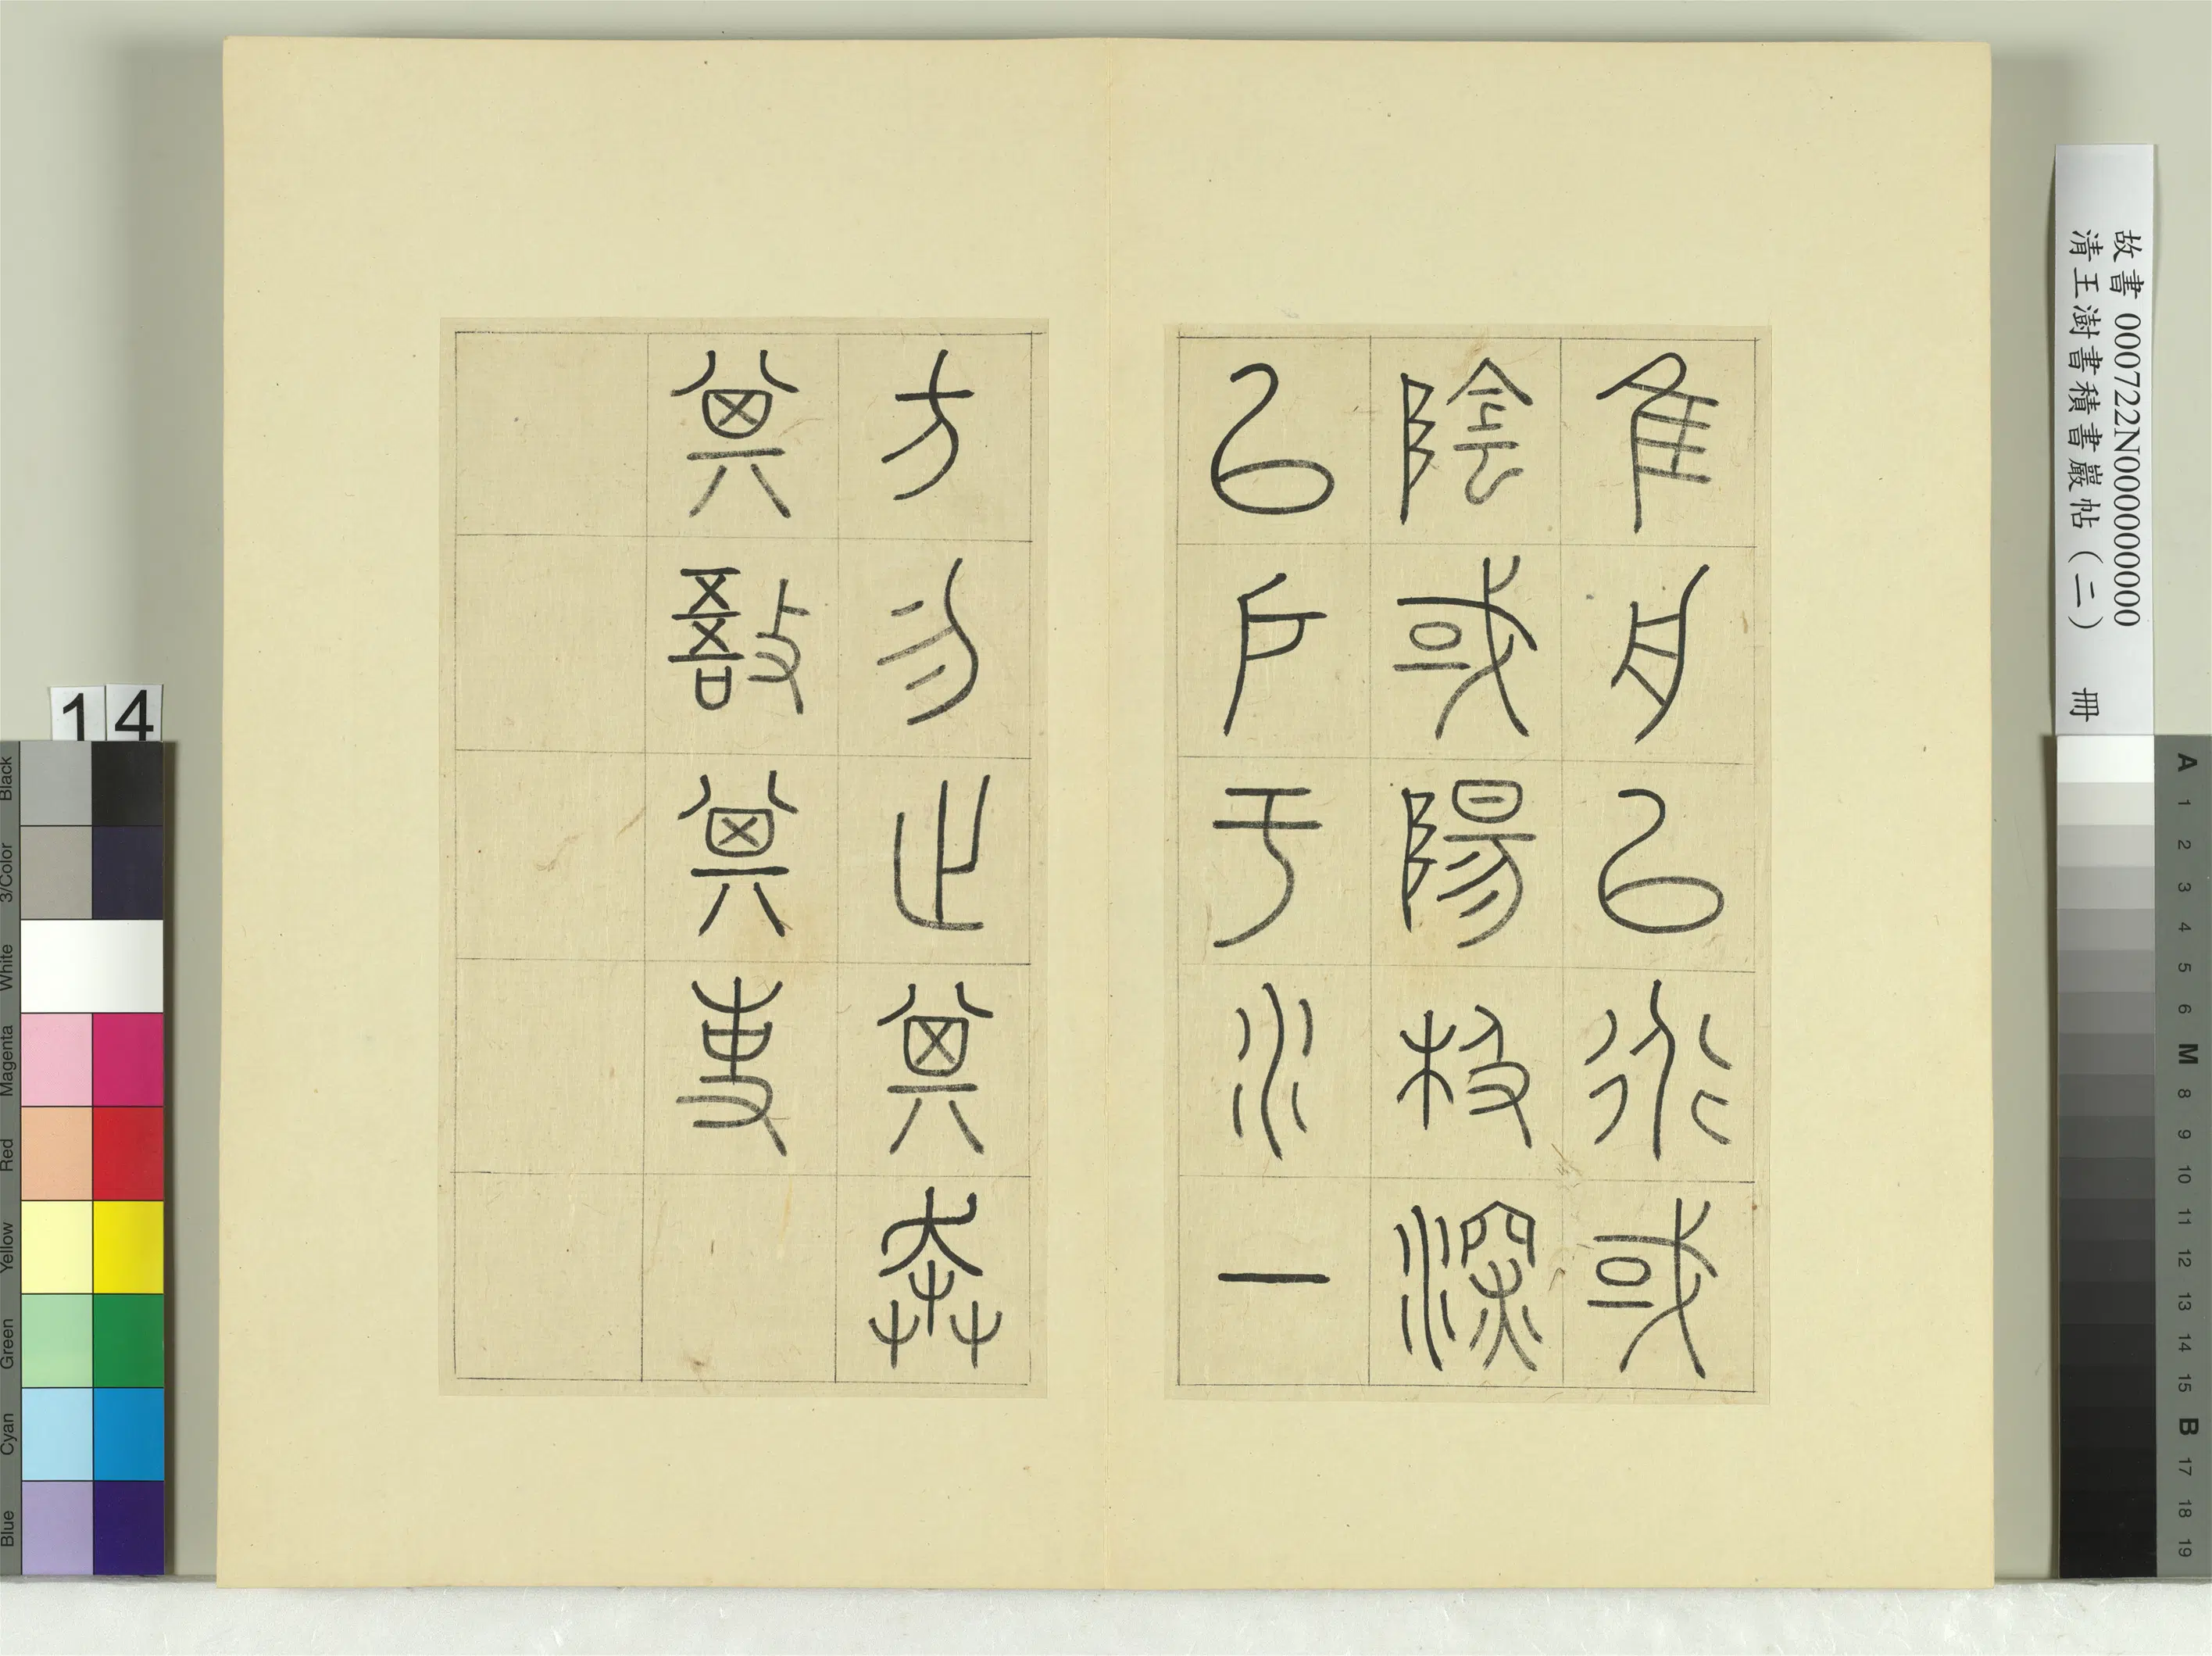 故書 000722N000000000
清王澍書積書巖帖（二） 冊
隹舟㠯行或
陰或陽极深
㠯戶于水一
方勿止其奔
其敔其事
14
Black
3/Color
White
Magenta
Red
Yellow
Green
Cyan
Blue
A 1 2 3 4 5 6 M 8 9 10 11 12 13 14 15 B 17 18 19